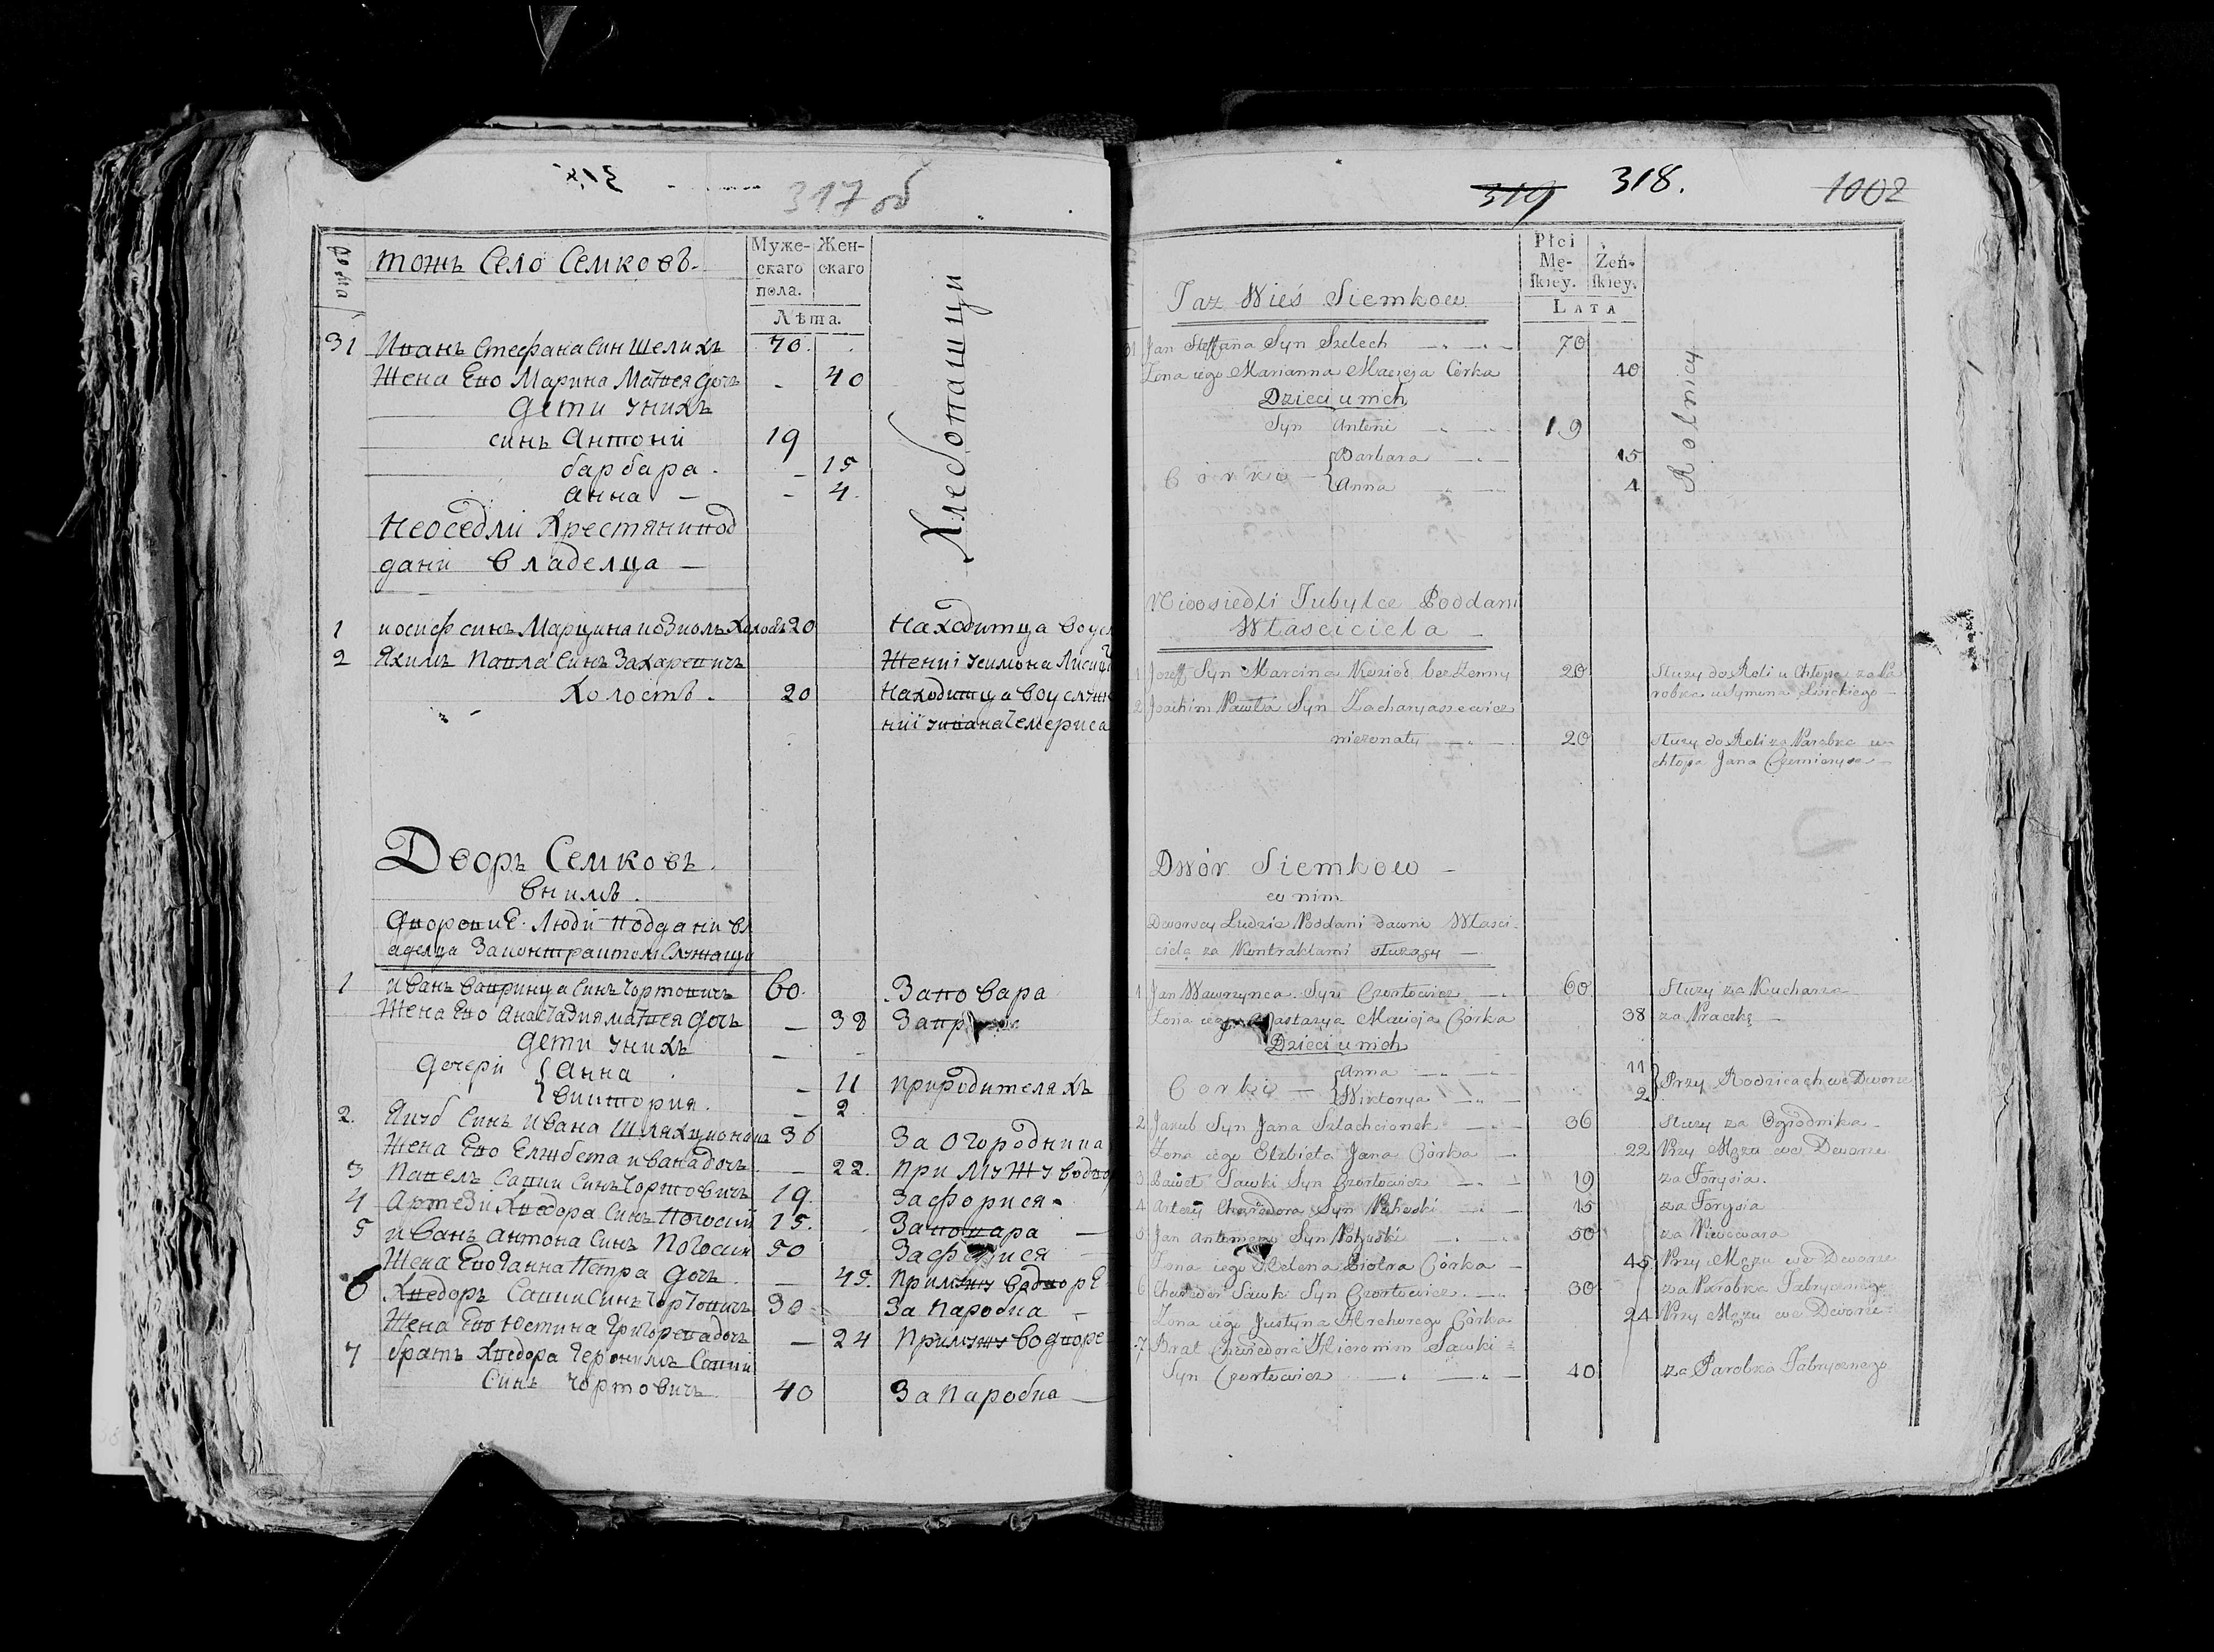 317 об
дома
тожъ Село Семковъ.
Муже-
скаго
пола.
Жен-
скаго
Лѣта.
Хлебопашци
31 Иванъ Стефана Син Шелихъ 70.
Жена Его Марина Матвея Дочь - 40
Дети У нихъ
синъ Антоній 19
барбара. - 15
Анна - - 4.
Неоседли Крестяни под
дани Владелца -
1 иосиф синъ Марцина Холостъ 20 Находитца во
2 Якимъ Павла Синъ Захаревичъ
Холостъ. 20 Находитца во услуже
нии Ивана Чемериса
Дворъ Семковъ.
Внимъ.
Дворовие Люди Поддани вл
аделца За контрактом Служащи
1 иванъ Вавринца Синъ Чортовичъ 60. За повара
Жена Его Анастазия Матвея Дочь - 38
Дети У нихъ -
Дочери Анна - 11 При родителяхъ
Виктория. - 2
2. Якуб Синъ Ивана Шляхционакъ 36 За огородника
Жена Его Елжбета ивана дочь. - 22. При Мужу
3 Павелъ Савки Синъ Чортовичъ 19. За форися
4 Артези Хведора Синъ 15.
5 иванъ Антона Синъ 50
Жена Его Ганна Петра Дочь - 45.
6 Хведоръ Савки Синъ Чортовичъ 30 За Паробка
Жена Его Юстина Григорева дочь - 24 При мужу во дворе
7 братъ Хведора Героним Савки
Синъ Чортовичъ 40 За Паробка
319 318. 1002
Płci
Mę-
skiey.
Żeń-
skiey.
LATA
Taz Wieś Siemkow
Rolnicy
31 Jan Steffana Syn Szelech 70
Zona iego Marianna Macieja Córka 40
Dzieci u nich
Syn Antoni 19
Barbara 15
Córki
Anna 4
Nieosiedli Tubylce Poddani
Własciciela
1 Jozeff Syn Marcina Koziod bezżenny 20 Służy do Roli u Chłopa za Pa
robka u Symona
2 Joachim Pawła Syn Zacharyaszewicz
nieżonaty 20 Służy do Roli za Parobka u
chłopa Jana Czemierysa
Dwór Siemkow
w nim
Dworscy Ludzie Poddani dawni Własci-
ciela za Kontraktami służący
1 Jan Wawrzynca Syn Czortowicz 60 Służy za Kucharza
Zona iego Anastazya Macieja Córka 38 za Praczkę
Dzieci u nich
Anna 11
Corki Przy Rodzicach we Dworze
Wiktorya 2
2 Jakub Syn Jana Szlachcionek 36 Służy za Ogrodnika
Zona iego Elzbieta Jana Córka 22 Przy Mężu we Dworze
3 Paweł Sawki Syn Czortowicz 19 za Forysia.
4 Artezy Chwiedora Syn 15 za Forysia
5 Jan Antoniego Syn 50 za Piwowara
Zona iego Helena Piotra Córka 45 Przy Mężu we Dworze
6 Chwiedor Sawki Syn Czortowicz 30 za Parobka Fabrycznego
Zona iego Justyna Hrehorego Córka 24 Przy Mężu we Dworze
7 Brat Chwiedora Hieronim Sawki
Syn Czortowicz 40 za Parobka Fabrycznego